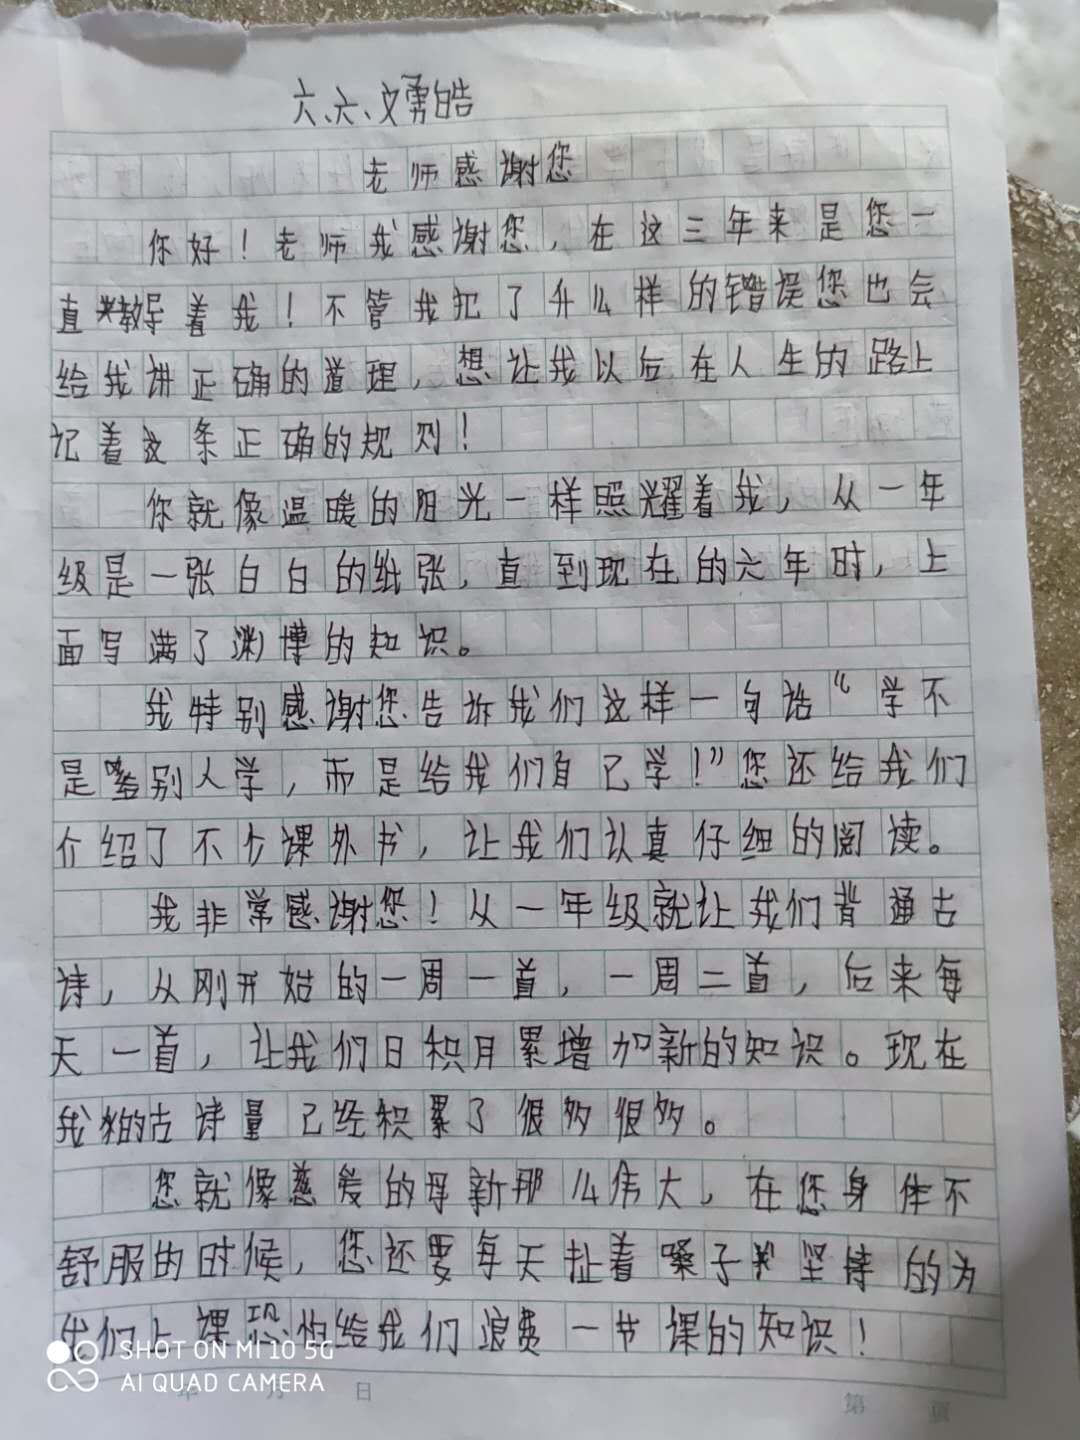 六、六、文勇皓
老师感谢您
你好！老师我感谢您，在这三年来是您一
直教导着我！不管我犯了什么样的错误您也会
给我讲正确的道理，想让我以后在人生的路上
记着这条正确的规则！
你就像温暖的阳光一样照耀着我，从一年
级是一张白白的纸张，直到现在的六年时，上
面写满了渊博的知识。
我特别感谢您告诉我们这样一句话“学不
是给别人学，而是给我们自己学！”您还给我们
介绍了不少课外书，让我们认真仔细的阅读。
我非常感谢您！从一年级就让我们背通古
诗，从刚开始的一周一首，一周二首，后来每
天一首，让我们日积月累增加新的知识。现在
我的古诗量已经积累了很多很多。
您就像慈爱的母亲那么伟大，在您身体不
舒服的时候，您还要每天扯着嗓子坚持的为
我们上课恐怕给我们浪费一节课的知识！
SHOT ON MI 10 5G
AI QUAD CAMERA
年 月 日 第 页